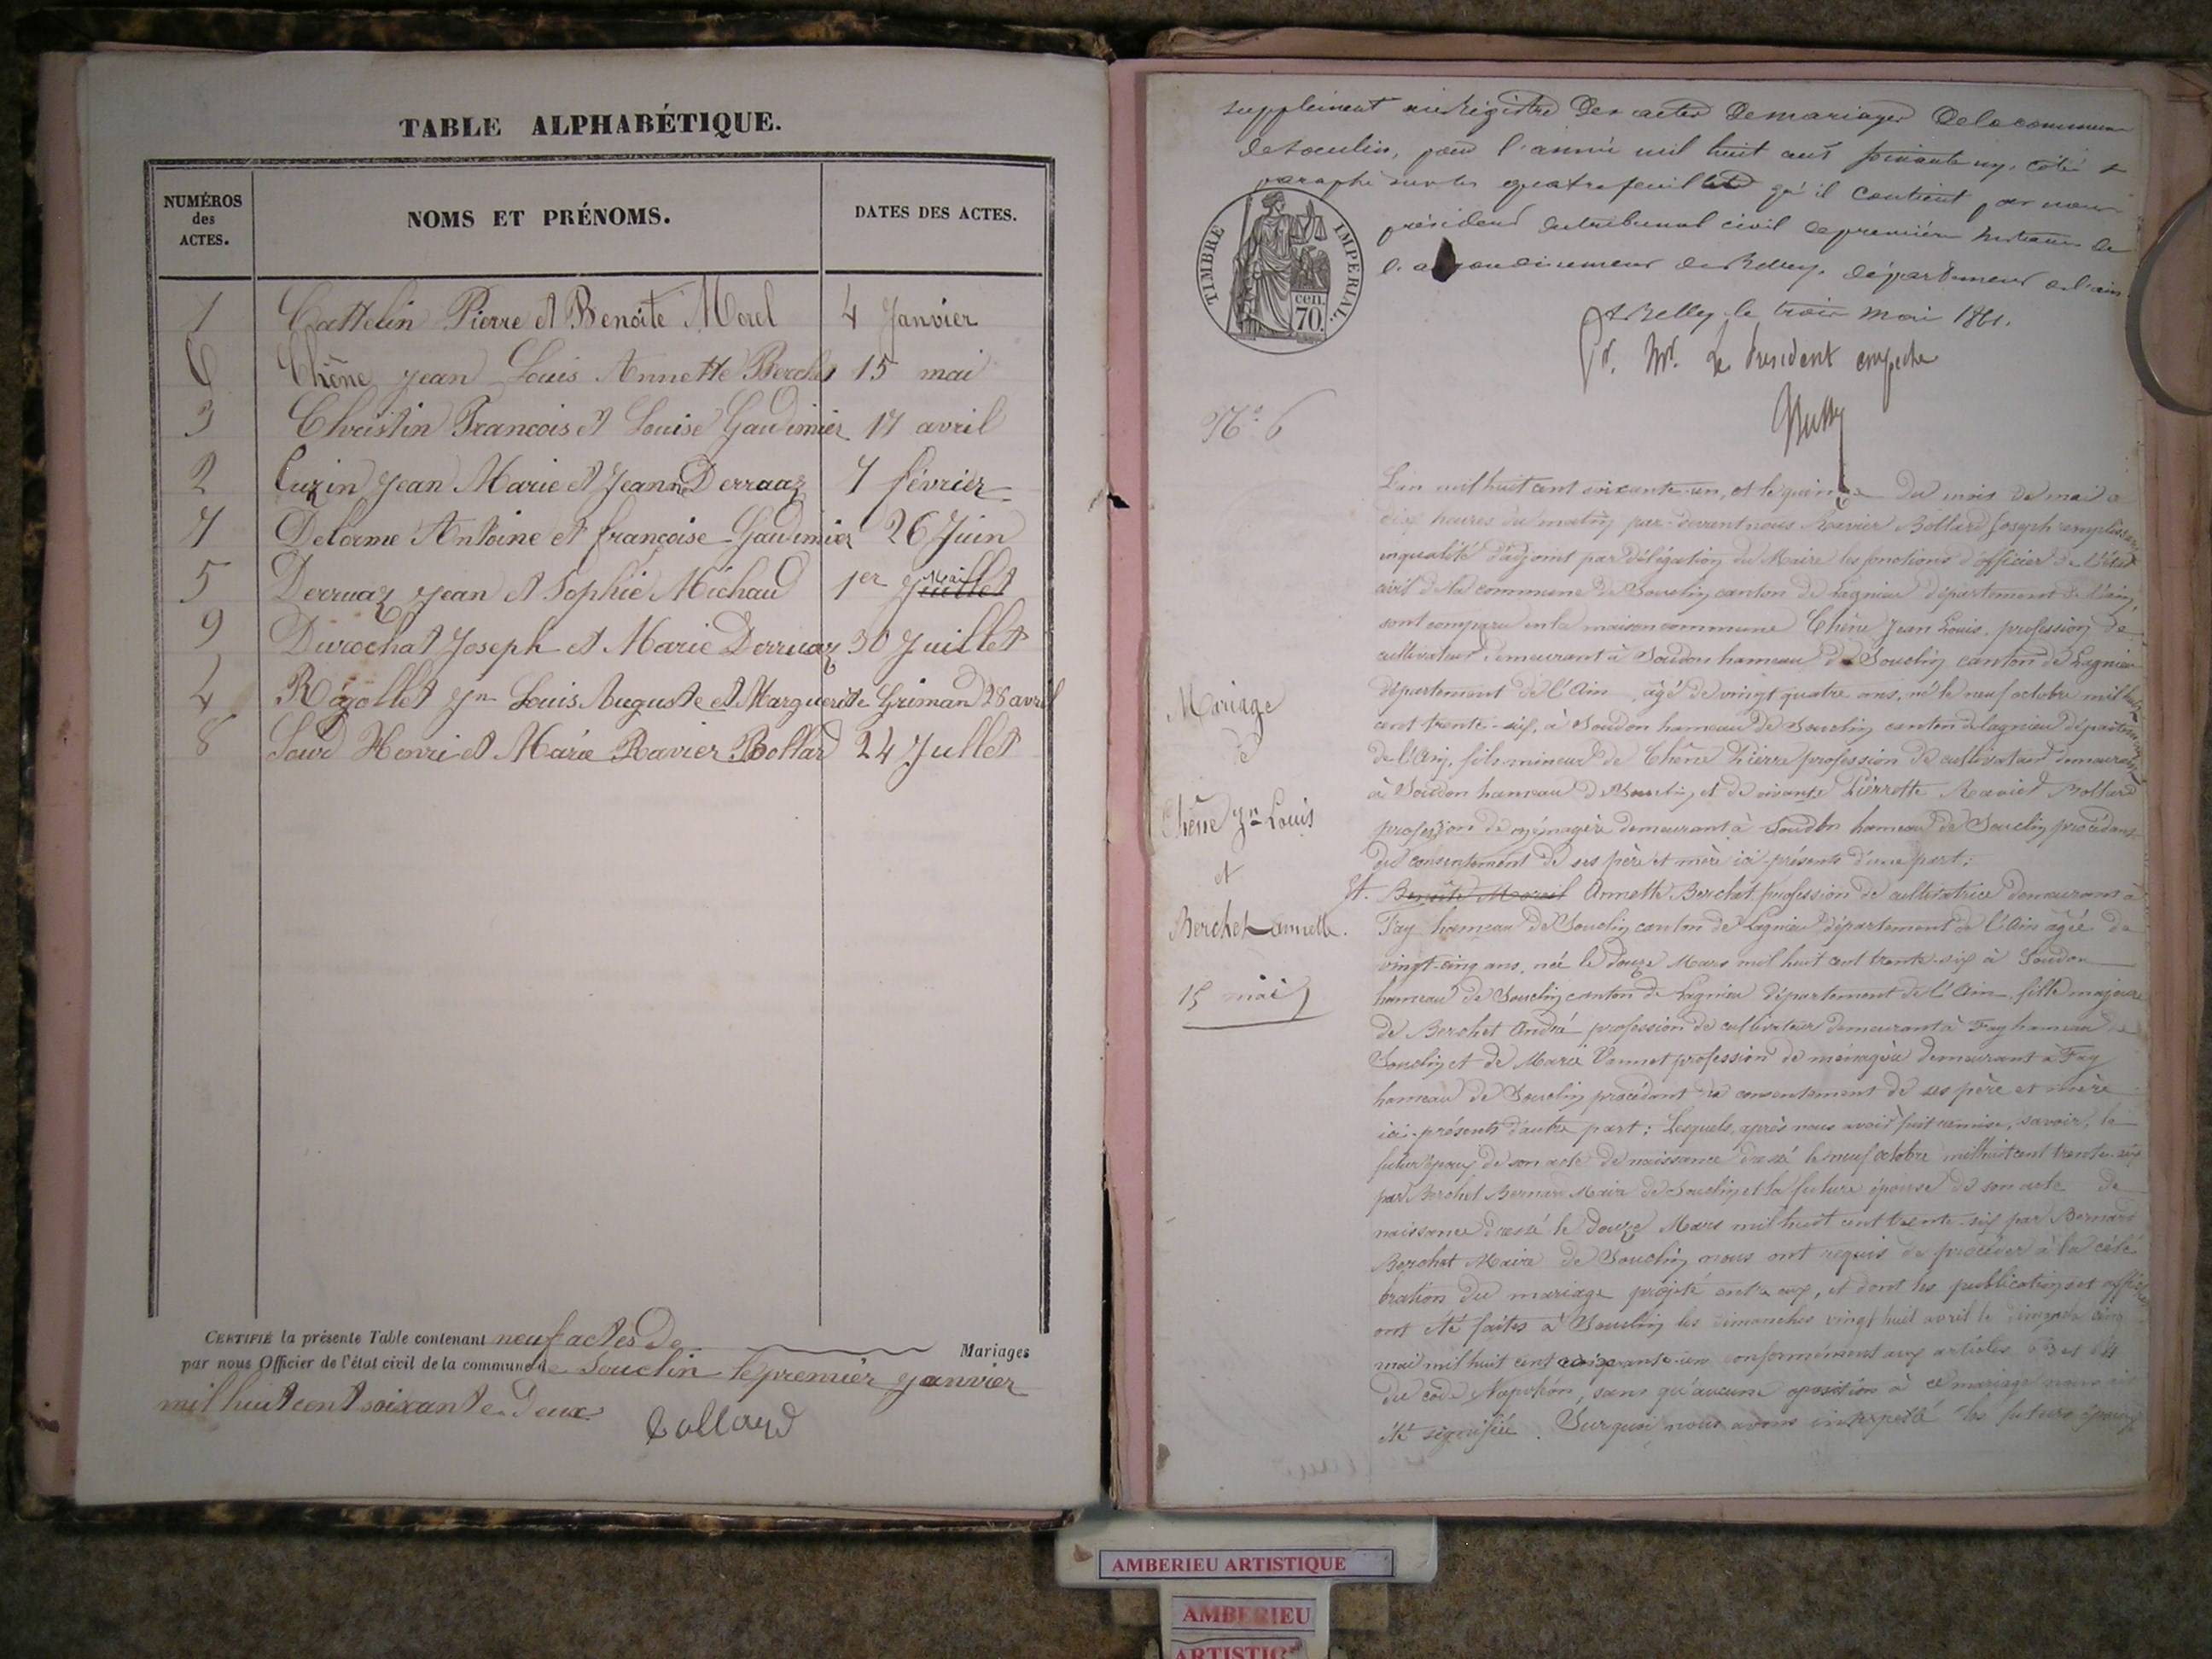 TABLE ALPHABÉTIQUE.
NUMÉROS des ACTES.
NOMS ET PRÉNOMS.
DATES DES ACTES.
1 Cattelin Pierre et Benoite Morel 4 Janvier
6 Chêne Jean Louis Annette Berchet 15 mai
3 Christin François et Louise Gaudimier 17 avril
2 Cuzin Jean Marie et Jeanne Derruaz 7 février
7 Delorme Antoine et françoise Gaudimier 26 Juin
5 Derruaz Jean et Sophie Michaud 1er Juillet Mai
9 Durochat Joseph et Marie Derruaz 30 Juillet
4 Rogollet Jn Louis Auguste et Marguerite Griman 28 avril
8 Sourd Henri et Marie Ravier Bollard 24 Jullet
CERTIFIÉ la présente Table contenant neuf actes de Mariages
par nous Officier de l'état civil de la commune de Souclin le premier janvier
mil huit cent soixante Deux
Bollard
supplément au Régistre des actes de mariages de la commune
de Souclin, pour l'année mil huit cent soixante un, côté &
paraphé sur les quatre feuillets qu'il contient par nous
président du tribunal civil de première instance de
l'arrondissement de Belley, département de l'ain.
A Belley le trois mai 1861.
Pr. Mr. Le Président empeché
TIMBRE IMPERIAL.
70. cen.
No. 6
Mariage
de
Chêne Jn Louis
et
Berchet annette.
15 mai
L'an mil huit cent soixante-un, et le quinze du mois de mai à
dix heures du matin par-devant nous Ravier Bollard Joseph remplissant
en qualité d'adjoint par délégation du Maire les fonctions d'officier de l'état
civil de la commune de Souclin canton de Lagnieu département de l'ain,
sont comparu en la maison commune Chêne Jean Louis, profession de
cultivateur demeurant à Soudon hameau de Souclin canton de Lagnieu
département de l'Ain, âgé de vingt quatre ans, né le neuf octobre mil huit
cent trente-six, à Soudon hameau de Souclin canton de lagnieu département
de l'Ain, fils mineur de Chêne Pierre profession de cultivateur demeurant
à Soudon hameau de Souclin et de vivante Pierrette Ravier Bollard
profession de ménagère demeurant à Soudon hameau de Souclin procédant
du consentement de ses père et mère ici-présents d'une part;
Et. Benoite Morel Annette Berchet profession de cultivatrice demeurant à
Fay hameau de Souclin canton de Lagnieu département de l'Ain agée de
vingt-cinq ans, née le douze Mars mil huit cent trente-six à Soudon
hameau de Souclin canton de Lagnieu département de l'Ain, fille majeure
de Berchet André profession de cultivateur demeurant à Fay hameau de
Souclin et de Marie Vannet profession de ménagère demeurant à Fay
hameau de Souclin procédant du consentement de ses père et mère
ici-présents d'autre part; Lesquels, après nous avoir fait remise, savoir, le
futur époux de son acte de naissance dressé le neuf octobre mil huit cent trente-six
par Berchet Bernard Maire de Souclin et la future épouse de son acte de
naissance dressé le douze Mars mil huit cent trente-six par Bernard
Berchet Maire de Souclin nous ont requis de procéder à la célé
bration du mariage projeté entre eux, et dont les publications et affiches
ont été faites à Souclin les dimanches vingt huit avril le dimanche cinq
mai mil huit cent soixante-un conformément aux articles 63 et 64
du code Napoléon, sans qu'aucune oposition à ce mariage nous ait
été signifiée. Surquoi nous avons interpellé les futurs époux
AMBERIEU ARTISTIQUE
AMBERIEU
ARTISTIQ